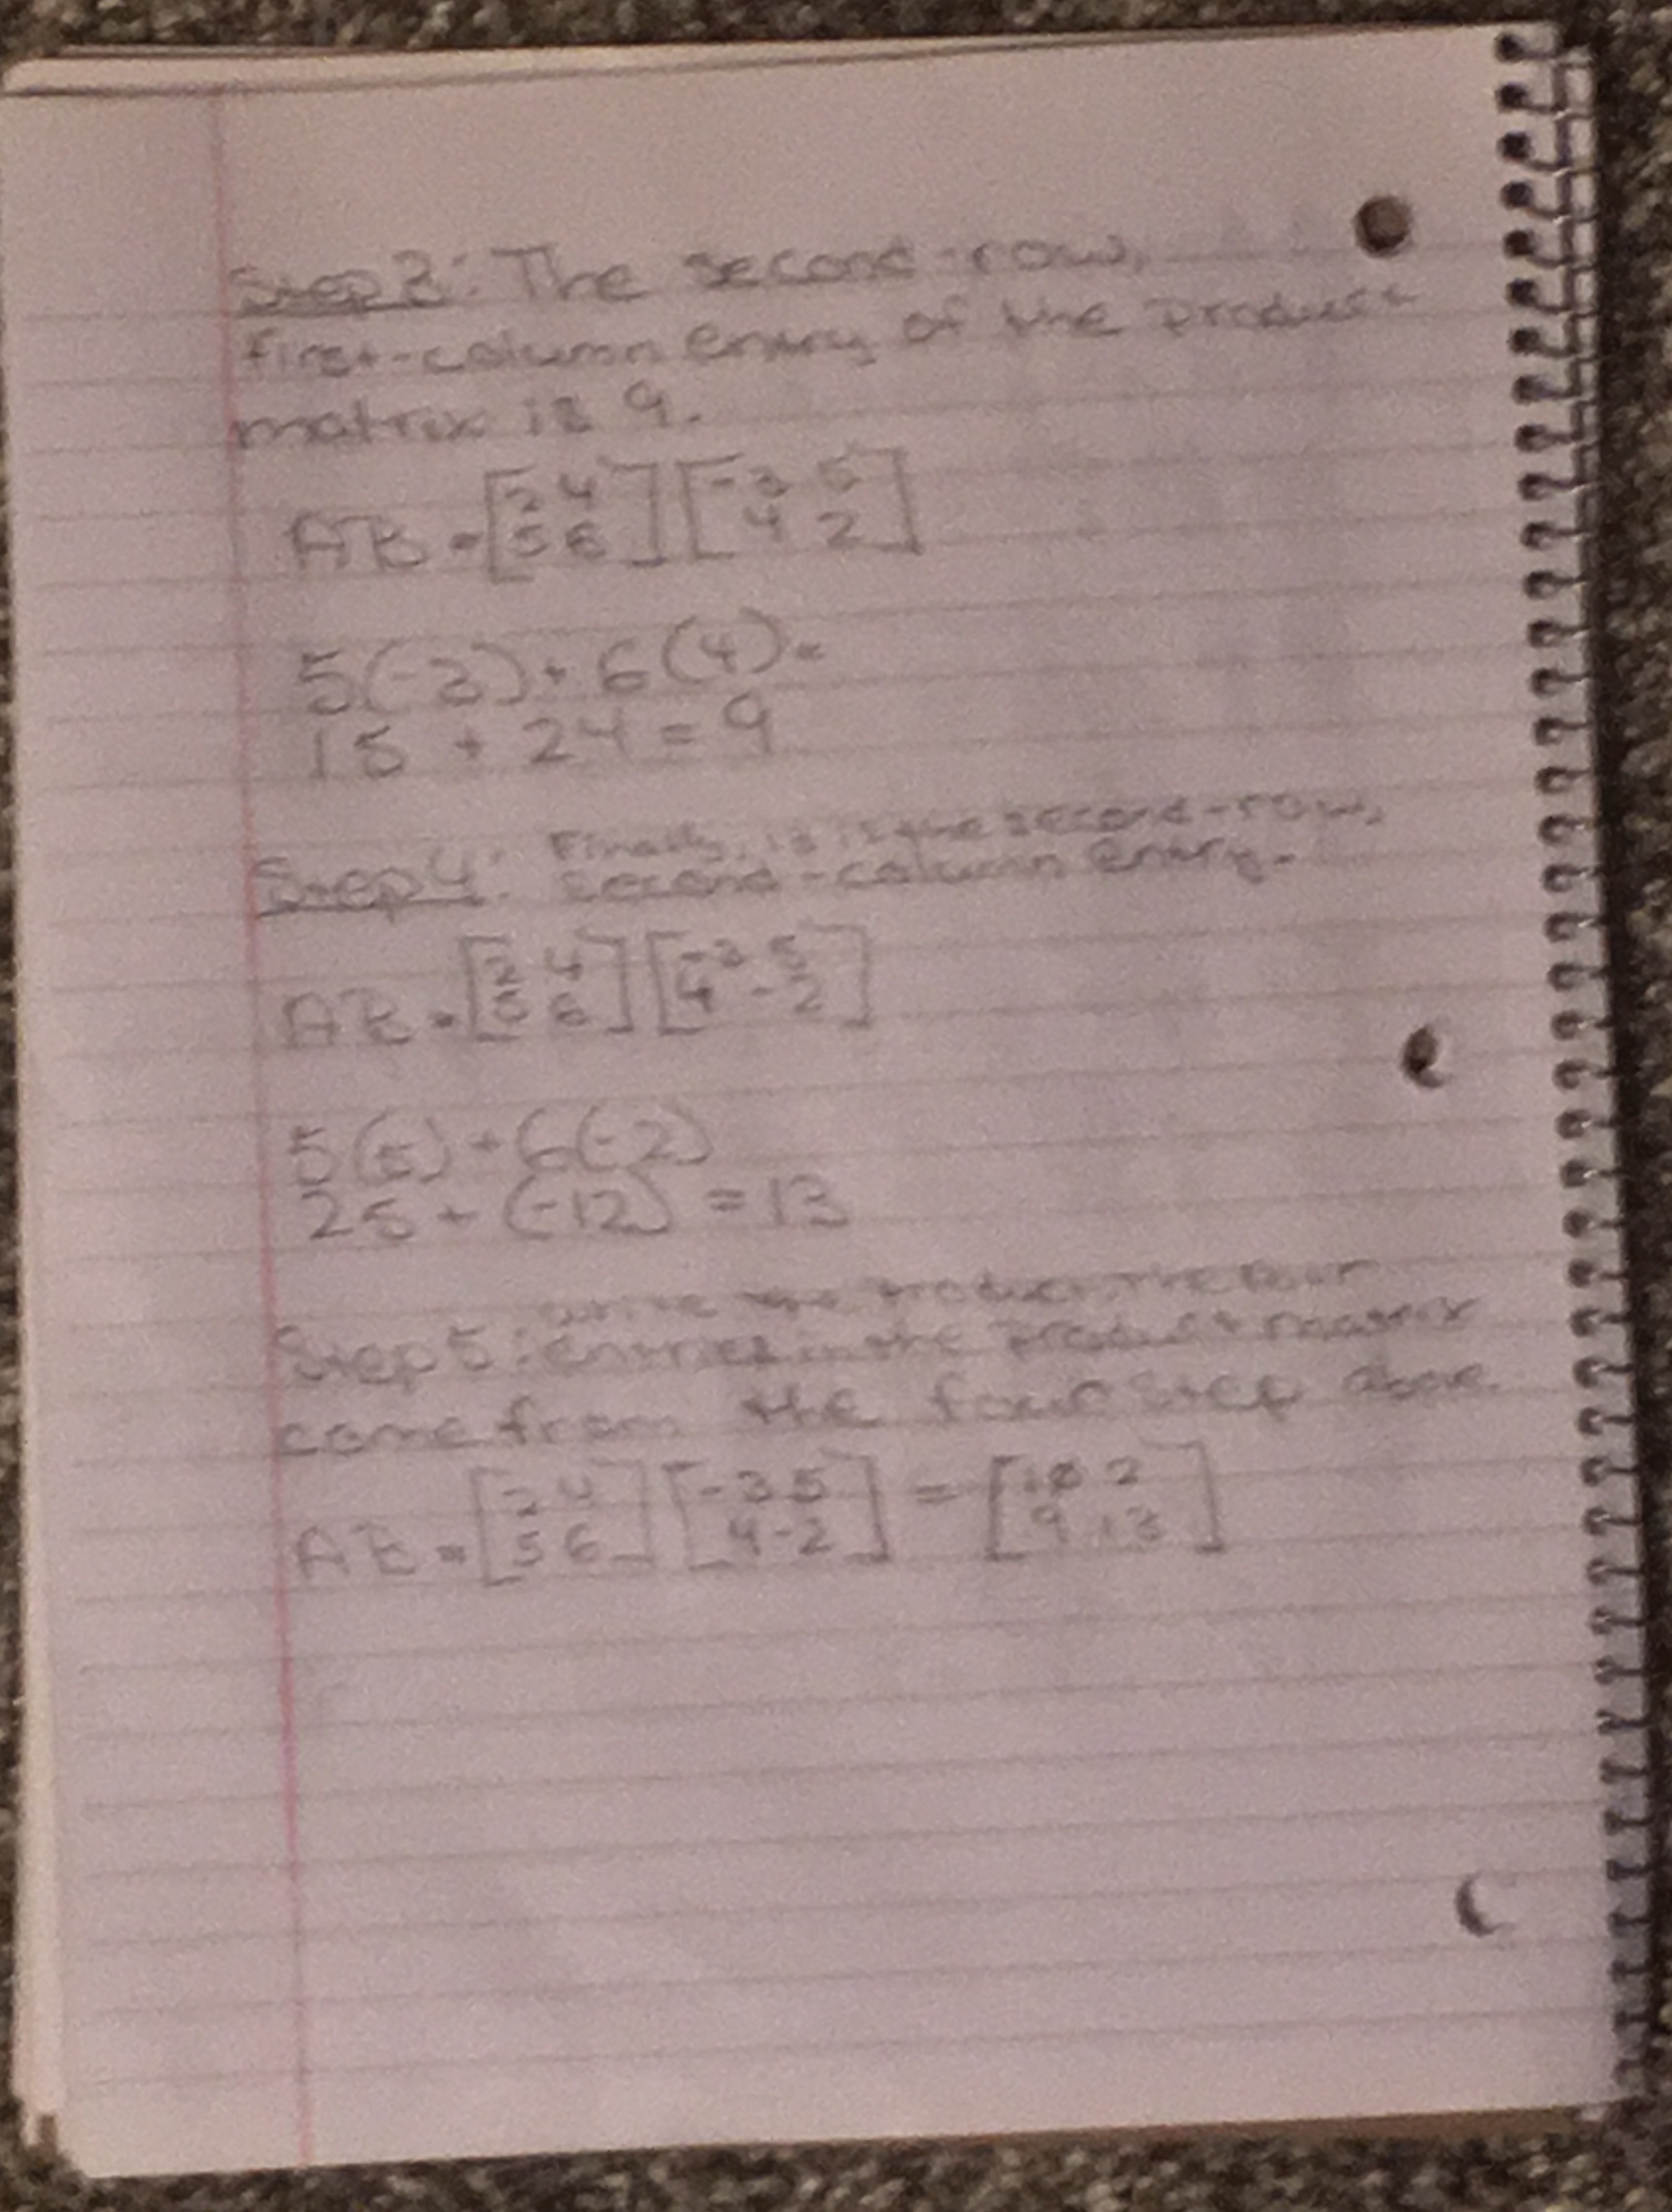 Step 3: The second-row,
first-column entry of the product
matrix is 9.
AB = [2 4 5 6] [-3 5 4 2]
5(-3) + 6(4) =
15 + 24 = 9
Step 4: Finally, is is the second-row,
second-column entry.
AB = [2 4 5 6] [-3 5 4 -2]
5(5) + 6(-2)
25 + (-12) = 13
write the product. The four
Step 5: entries in the product matrix
come from the four step above.
AB = [2 4 5 6] [-3 5 4 -2] = [10 2 9 13]